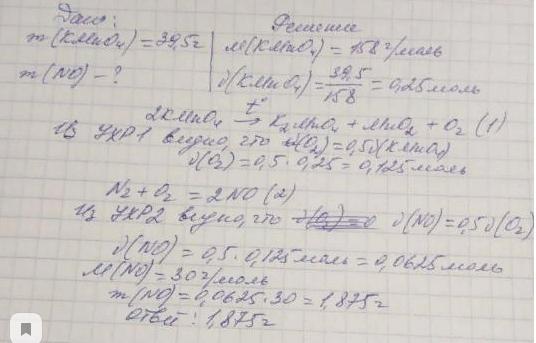 Дано:
m(KMnO₄) = 39,5г
m(NO) - ?
Решение
M(KMnO₄) = 158 г/моль
ν(KMnO₄) = 39,5/158 = 0,25 моль
2KMnO₄ t°→ K₂MnO₄ + MnO₂ + O₂ (1)
Из УХР1 видно, что ν(O₂) = 0,5ν(KMnO₄)
ν(O₂) = 0,5 · 0,25 = 0,125 моль
N₂ + O₂ = 2NO (2)
Из УХР2 видно, что ν(NO) = 0,5ν(O₂)
ν(NO) = 0,5 · 0,125 моль = 0,0625 моль
M(NO) = 30 г/моль
m(NO) = 0,0625 · 30 = 1,875г
Ответ: 1,875г